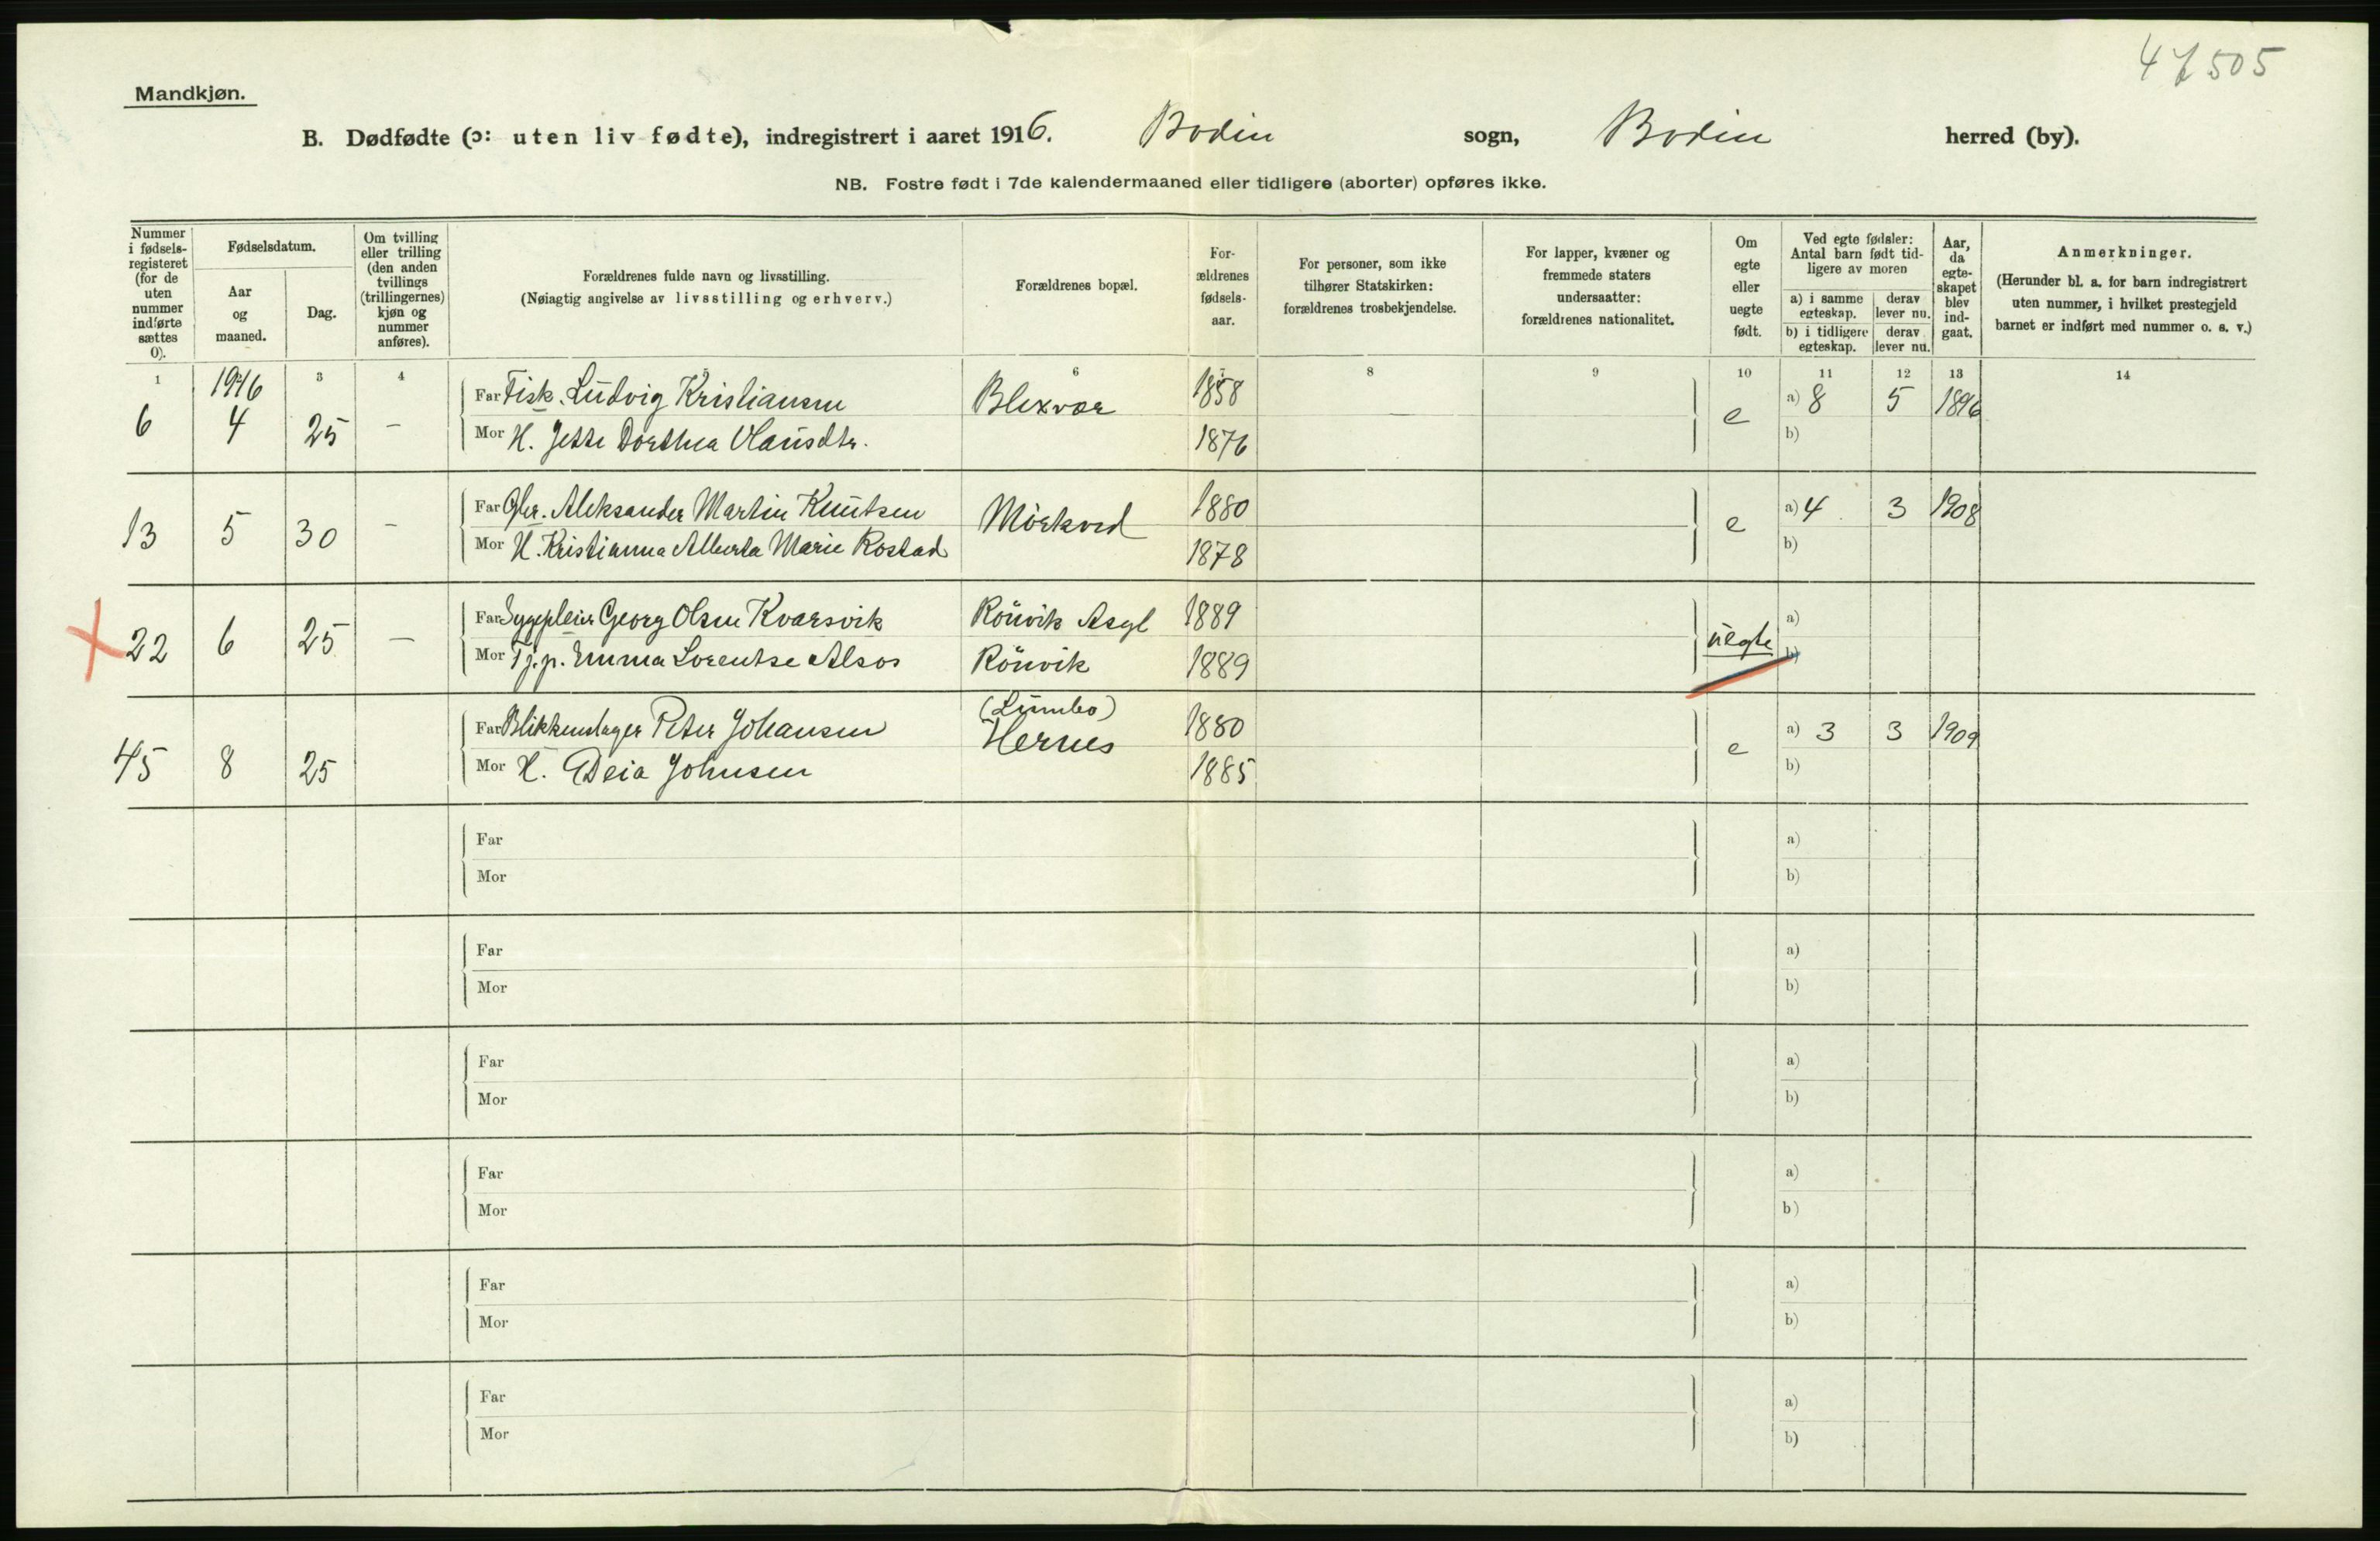 47505
Mandkjøn.
B. Dødfødte (ɔ: uten liv fødte), indregistrert i aaret 1916. Bodin sogn, Bodin herred (by).
NB. Fostre født i 7de kalendermaaned eller tidligere (aborter) opføres ikke.
Nummer i fødsels-registeret (for de uten nummer indførte sættes 0).
Fødselsdatum.
Aar og maaned.
Dag.
Om tvilling eller trilling (den anden tvillings (trillingernes) kjøn og nummer anføres).
Forældrenes fulde navn og livsstilling.
(Nøiagtig angivelse av livsstilling og erhverv.)
Forældrenes bopæl.
For-ældrenes fødsels-aar.
For personer, som ikke tilhører Statskirken: forældrenes trosbekjendelse.
For lapper, kvæner og fremmede staters undersaatter: forældrenes nationalitet.
Om egte eller uegte født.
Ved egte fødsler: Antal barn født tid-ligere av moren
a) i samme egteskap.
derav lever nu.
b) i tidligere egteskap.
derav lever nu.
Aar, da egte-skapet blev ind-gaat.
Anmerkninger.
(Herunder bl. a. for barn indregistrert uten nummer, i hvilket prestegjeld barnet er indført med nummer o. s. v.)
1 3 4 6 8 9 10 11 12 13 14
1916
6 4 25 — Far Fisk. Ludvig Kristiansen Blixvær 1858 e a) 8 5 1896
Mor H. Jette Dorthea Olausdtr. 1876 b)
13 5 30 — Far Gbr. Aleksander Martin Knutsen Mörkved 1880 e a) 4 3 1908
Mor H. Kristianna Alberta Marie Rostad 1878 b)
22 6 25 — Far Sygepleier Georg Olsen Kvarsvik Rönvik Asyl 1889 uegte a)
Mor Tj.p. Emma Lorentse Alsos Rönvik 1889 b)
45 8 25 Far Blikkenslager Peter Johansen Hernes 1880 e a) 3 3 1909
Mor H. Johnsen 1885 b)
Far a)
Mor b)
Far a)
Mor b)
Far a)
Mor b)
Far a)
Mor b)
Far a)
Mor b)
Far a)
Mor b)